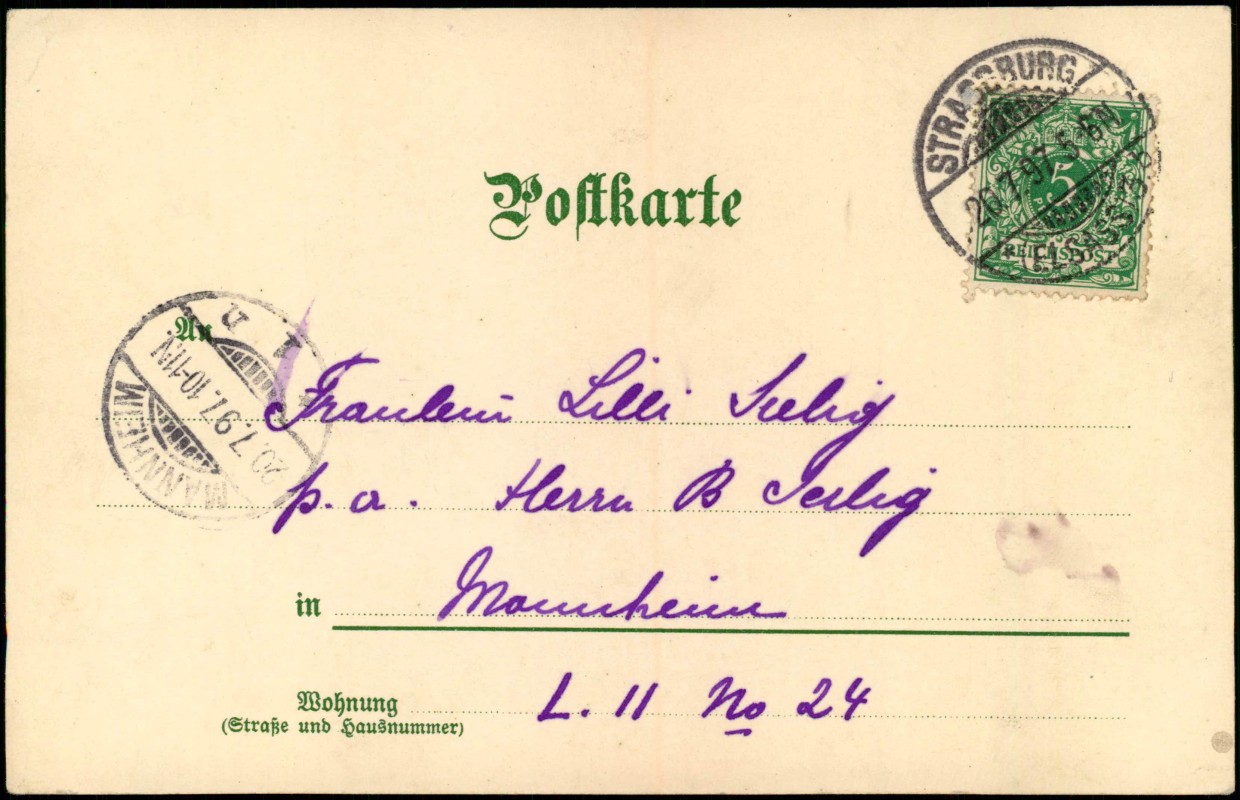 Postkarte
STRASSBURG
20.7.97.5-6N
(ELSASS)
5
REICHSPOST
An
MANNHEIM
20.7.97.10-11N
Fräulein Lilli Selig
p. a. Herrn B Selig
in Mannheim
Wohnung L. 11 No 24
(Straße und Hausnummer)